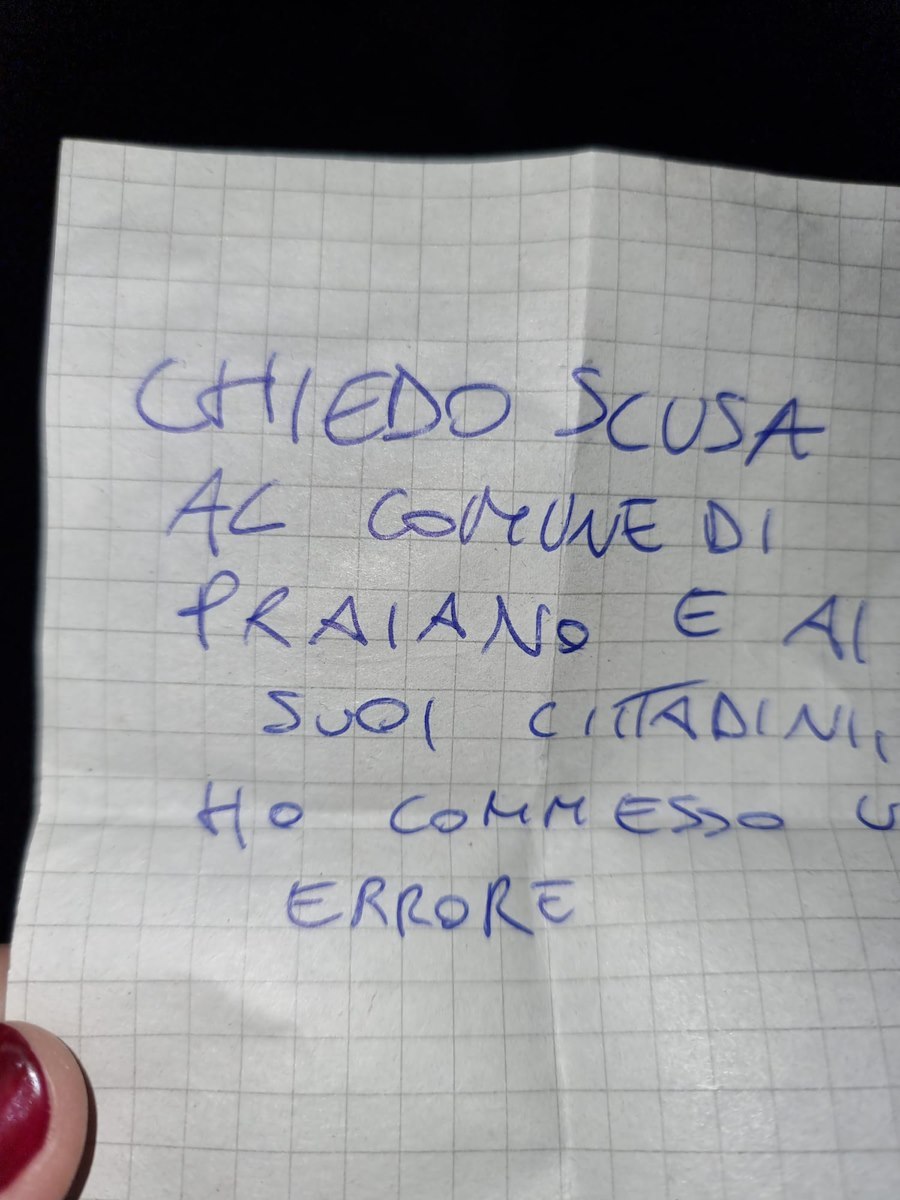 CHIEDO SCUSA
AL COMUNE DI
PRAIANO E AI
SUOI CITTADINI,
HO COMMESSO U
ERRORE